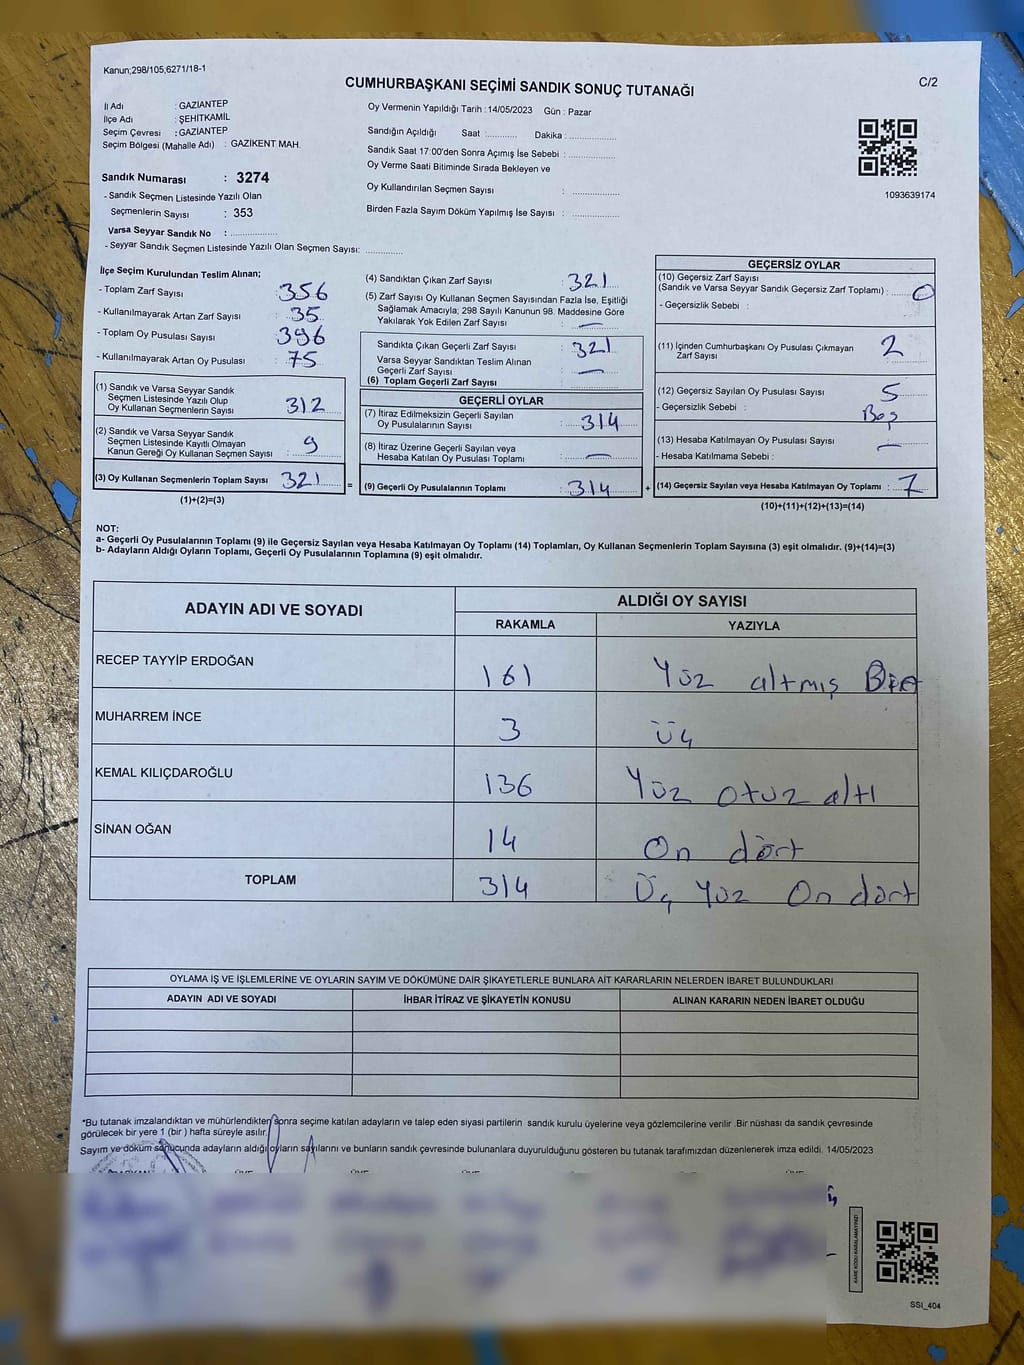 Kanun;298/105,6271/18-1
CUMHURBAŞKANI SEÇİMİ SANDIK SONUÇ TUTANAĞI
C/2
İl Adı : GAZİANTEP
İlçe Adı : ŞEHİTKAMİL
Seçim Çevresi : GAZİANTEP
Seçim Bölgesi (Mahalle Adı) : GAZİKENT MAH.
Oy Vermenin Yapıldığı Tarih : 14/05/2023 Gün : Pazar
Sandığın Açıldığı Saat :.......... Dakika : ................
Sandık Saat 17:00'den Sonra Açımış İse Sebebi : ................
Oy Verme Saati Bitiminde Sırada Bekleyen ve
Oy Kullandırılan Seçmen Sayısı : ................
Birden Fazla Sayım Döküm Yapılmış İse Sayısı : ................
1093639174
Sandık Numarası : 3274
- Sandık Seçmen Listesinde Yazılı Olan
Seçmenlerin Sayısı : 353
Varsa Seyyar Sandık No : ................
- Seyyar Sandık Seçmen Listesinde Yazılı Olan Seçmen Sayısı: ............
İlçe Seçim Kurulundan Teslim Alınan;
- Toplam Zarf Sayısı : 356
- Kullanılmayarak Artan Zarf Sayısı : 35
- Toplam Oy Pusulası Sayısı : 396
- Kullanılmayarak Artan Oy Pusulası : 75
(1) Sandık ve Varsa Seyyar Sandık
Seçmen Listesinde Yazılı Olup
Oy Kullanan Seçmenlerin Sayısı : 312
(2) Sandık ve Varsa Seyyar Sandık
Seçmen Listesinde Kayıtlı Olmayan
Kanun Gereği Oy Kullanan Seçmen Sayısı : 9
(3) Oy Kullanan Seçmenlerin Toplam Sayısı : 321 =
(1)+(2)=(3)
(4) Sandıktan Çıkan Zarf Sayısı : 321
(5) Zarf Sayısı Oy Kullanan Seçmen Sayısından Fazla İse, Eşitliği
Sağlamak Amacıyla; 298 Sayılı Kanunun 98. Maddesine Göre
Yakılarak Yok Edilen Zarf Sayısı : —
Sandıkta Çıkan Geçerli Zarf Sayısı : 321
Varsa Seyyar Sandıktan Teslim Alınan
Geçerli Zarf Sayısı : —
(6) Toplam Geçerli Zarf Sayısı : ............
GEÇERLİ OYLAR
(7) İtiraz Edilmeksizin Geçerli Sayılan
Oy Pusulalarının Sayısı : 314
(8) İtiraz Üzerine Geçerli Sayılan veya
Hesaba Katılan Oy Pusulası Toplamı : —
(9) Geçerli Oy Pusulalarının Toplamı : 314 +
GEÇERSİZ OYLAR
(10) Geçersiz Zarf Sayısı
(Sandık ve Varsa Seyyar Sandık Geçersiz Zarf Toplamı) : 0
- Geçersizlik Sebebi :
(11) İçinden Cumhurbaşkanı Oy Pusulası Çıkmayan
Zarf Sayısı : 2
(12) Geçersiz Sayılan Oy Pusulası Sayısı : 5
- Geçersizlik Sebebi : Boş
(13) Hesaba Katılmayan Oy Pusulası Sayısı : —
- Hesaba Katılmama Sebebi :
(14) Geçersiz Sayılan veya Hesaba Katılmayan Oy Toplamı : 7
(10)+(11)+(12)+(13)=(14)
NOT:
a- Geçerli Oy Pusulalarının Toplamı (9) ile Geçersiz Sayılan veya Hesaba Katılmayan Oy Toplamı (14) Toplamları, Oy Kullanan Seçmenlerin Toplam Sayısına (3) eşit olmalıdır. (9)+(14)=(3)
b- Adayların Aldığı Oyların Toplamı, Geçerli Oy Pusulalarının Toplamına (9) eşit olmalıdır.
ADAYIN ADI VE SOYADI ALDIĞI OY SAYISI
RAKAMLA YAZIYLA
RECEP TAYYİP ERDOĞAN 161 Yüz altmış Bir
MUHARREM İNCE 3 Üç
KEMAL KILIÇDAROĞLU 136 Yüz otuz altı
SİNAN OĞAN 14 On dört
TOPLAM 314 Üç Yüz On dört
OYLAMA İŞ VE İŞLEMLERİNE VE OYLARIN SAYIM VE DÖKÜMÜNE DAİR ŞİKAYETLERLE BUNLARA AİT KARARLARIN NELERDEN İBARET BULUNDUKLARI
ADAYIN ADI VE SOYADI İHBAR İTİRAZ VE ŞİKAYETİN KONUSU ALINAN KARARIN NEDEN İBARET OLDUĞU
*Bu tutanak imzalandıktan ve mühürlendikten sonra seçime katılan adayların ve talep eden siyasi partilerin sandık kurulu üyelerine veya gözlemcilerine verilir .Bir nüshası da sandık çevresinde
görülecek bir yere 1 (bir ) hafta süreyle asılır.
Sayım ve döküm sonucunda adayların aldığı oyların sayılarını ve bunların sandık çevresinde bulunanlara duyurulduğunu gösteren bu tutanak tarafımızdan düzenlenerek imza edildi. 14/05/2023
KARE KODU KARALAMAYINIZ!
SSİ_404